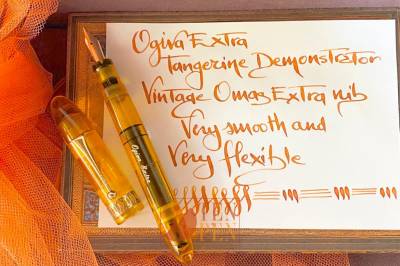 Ogiva Extra
Tangerine Demonstrator
Vintage Omas Extra nib
Very smooth and
Very flexible
PEN
PEN